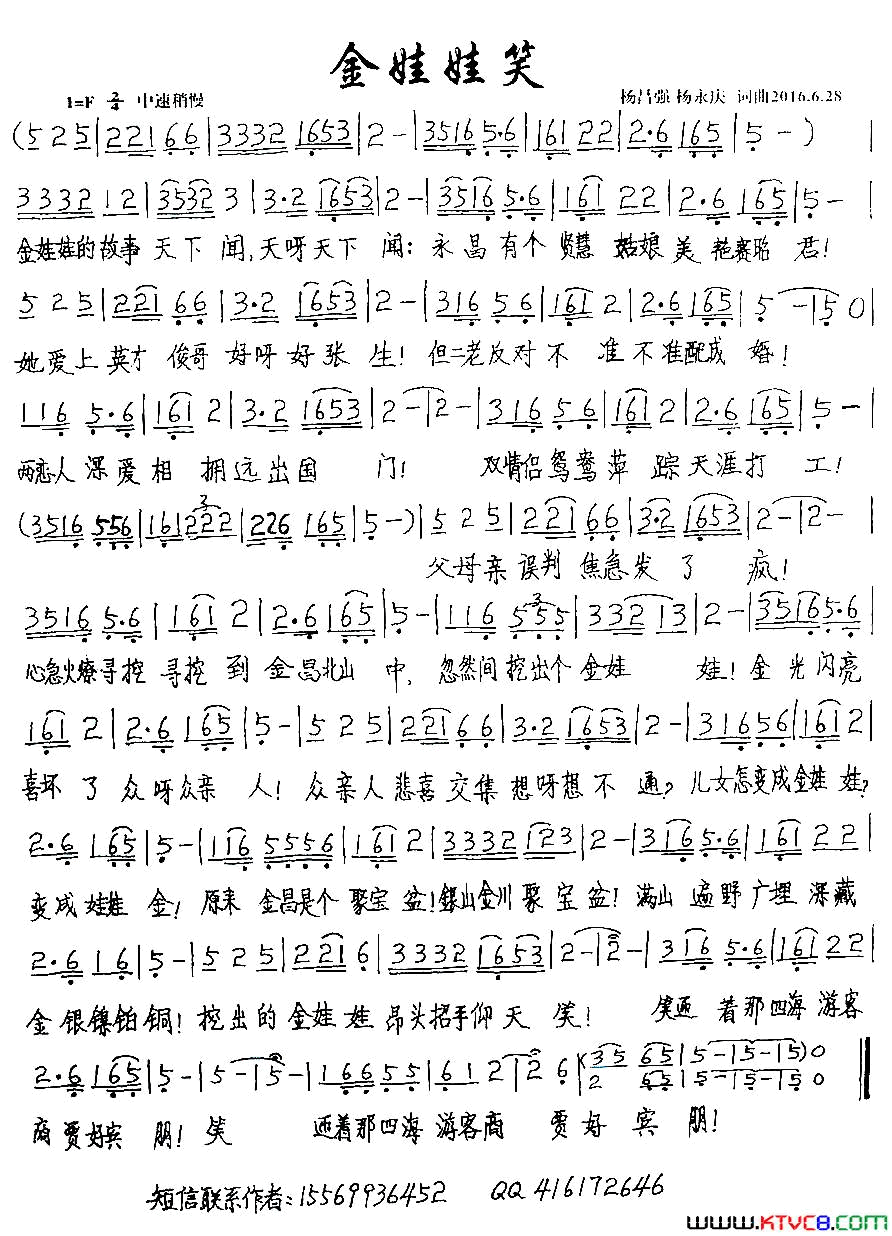 金娃娃笑
1=F 2/4 中速稍慢 杨昌强 杨永庆 词曲2016.6.28
(5 2 5|2 2 1 6 6|3 3 3 2 1 6 5 3|2 -|3 5 1 6 5·6|1 6 1 2 2|2·6 1 6 5|5 -)|
3 3 3 2 1 2|3 5 3 2 3|3·2 1 6 5 3|2 -|3 5 1 6 5·6|1 6 1 2 2|2·6 1 6 5|5 -|
金娃娃的故事 天下 闻,天呀天下 闻: 永昌有个 贤慧 姑娘美 艳赛昭 君!
5 2 5|2 2 1 6 6|3·2 1 6 5 3|2 -|3 1 6 5 6|1 6 1 2|2·6 1 6 5|5 -|5 0
她爱上英才 俊哥 好呀好张 生! 但二老反对不 准不准配成 婚!
1 1 6 5·6|1 6 1 2|3·2 1 6 5 3|2 -|2 -|3 1 6 5 6|1 6 1 2|2·6 1 6 5|5 -|
两恋人深爱相 拥远出国 门! 双情侣鸳鸯萍 踪天涯打 工!
(3 5 1 6 5 5 6|1 6 1 2 2 2|2 2 6 1 6 5|5 -)|5 2 5|2 2 1 6 6|3·2 1 6 5 3|2 -|2 -
父母亲误判 焦急发 了 疯!
3 5 1 6 5·6|1 6 1 2|2·6 1 6 5|5 -|1 1 6 5 5 5|3 3 2 1 3|2 -|3 5 1 6 5·6
心急火燎寻挖 寻挖 到 金昌北山 中, 忽然间挖出个 金娃 娃! 金光闪亮
1 6 1 2|2·6 1 6 5|5 -|5 2 5|2 2 1 6 6|3·2 1 6 5 3|2 -|3 1 6 5 6|1 6 1 2|
喜坏 了 众呀众亲 人! 众亲人悲喜交集 想呀想不 通? 儿女怎变成金娃 娃?
2·6 1 6 5|5 -|1 1 6 5 5 5 6|1 6 1 2|3 3 3 2 1 2 3|2 -|3 1 6 5·6|1 6 1 2 2
变成娃娃 金! 原来 金昌是个 聚宝 盆!银山金川聚宝盆! 满山 遍野广埋 深藏
2·6 1 6|5 -|5 2 5|2 2 1 6|3 3 3 2 1 6 5 3|2 -|2 -|3 1 6 5·6|1 6 1 2 2
金 银镍铂铜! 挖出的金娃 娃 昂头招手仰天 笑! 笑迎 着那四海 游客
2·6 1 6 5|5 -|5 -|5 -|1 6 6 5 5|6 1 2|2 6(3 5 6 5|5 -|5 -|5)0
2 6 5|5 -|5 -|5 0
商贾好宾 朋! 笑 迎着那四海 游客商 贾好宾 朋!
短信联系作者:15569936452 QQ 416172646
www.KTVC8.com